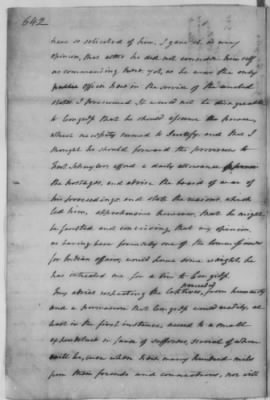 642
have so solicited of him, I gave it as my
opinion, that altho he did not consider himself
as commanding here yet, as he was the only
public officer here in the service of the united
states I presumed it would not be disagreeable
to Congress that he should assume the power,
where necessity seemed to Justify and that I
thought he should forward the provisions to
Fort Schuyler afford a daily allowance
the hostages, and advise the board of war of
his proceedings and state the reasons which
led him, apprehensive however, that he might
be faulted and conceiving that my opinion
as having been formerly one of the Commissioners
for Indian affairs, would have some weight, he
has intreated me for a line to Congress.
This advice respecting the Captives, proceeded from humanity
and a persuasion that Congress could not, at
least in the first instance, accede to a small
expenditure in favor of sufferers, several of whom
will be, even when here many hundred miles
from their friends and connections, nor will